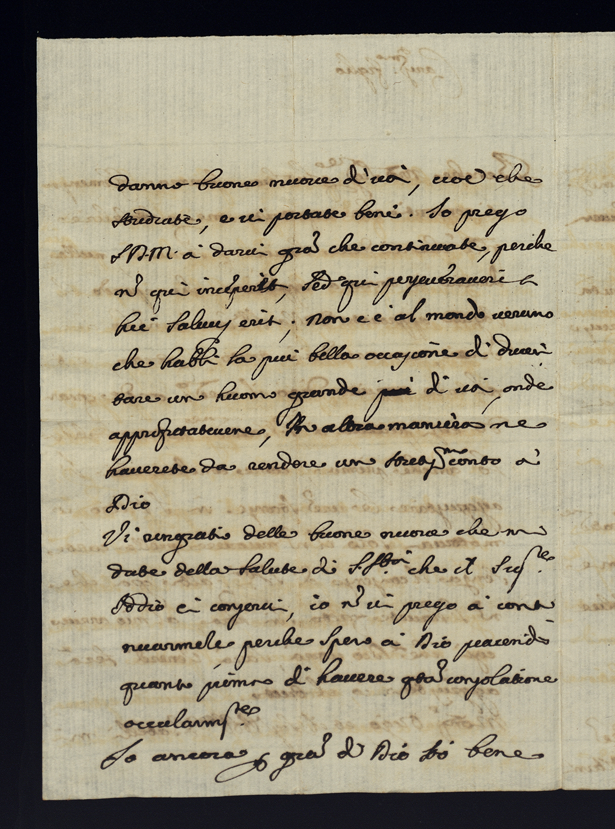 danno buone nuove di voi, cioè che
studiate, e vi portate bene. Io prego
S.D.M. à darvi gra͠ che continuate, perche
n͠ qui inceperit, sed qui perseveraverit
hic salvus erit; non c'è al mondo veruno
che habbi la più bella occasione di diven
tare un huomo grande di voi, onde
approfitatevene, In altra maniera ne
haverete da rendere un strettss.mo conto à
Dio
Vi ringratio delle buone nuove che mi
date della salute di S. Stà. che il Sig.re
Iddio ci conservi, io n͠ vi prego à conti
nuarmele perche spero à Dio piacendo
quanto prima di havere q͠ta consolatione
occularm.te
Io ancora p gra͠ di Dio stò bene